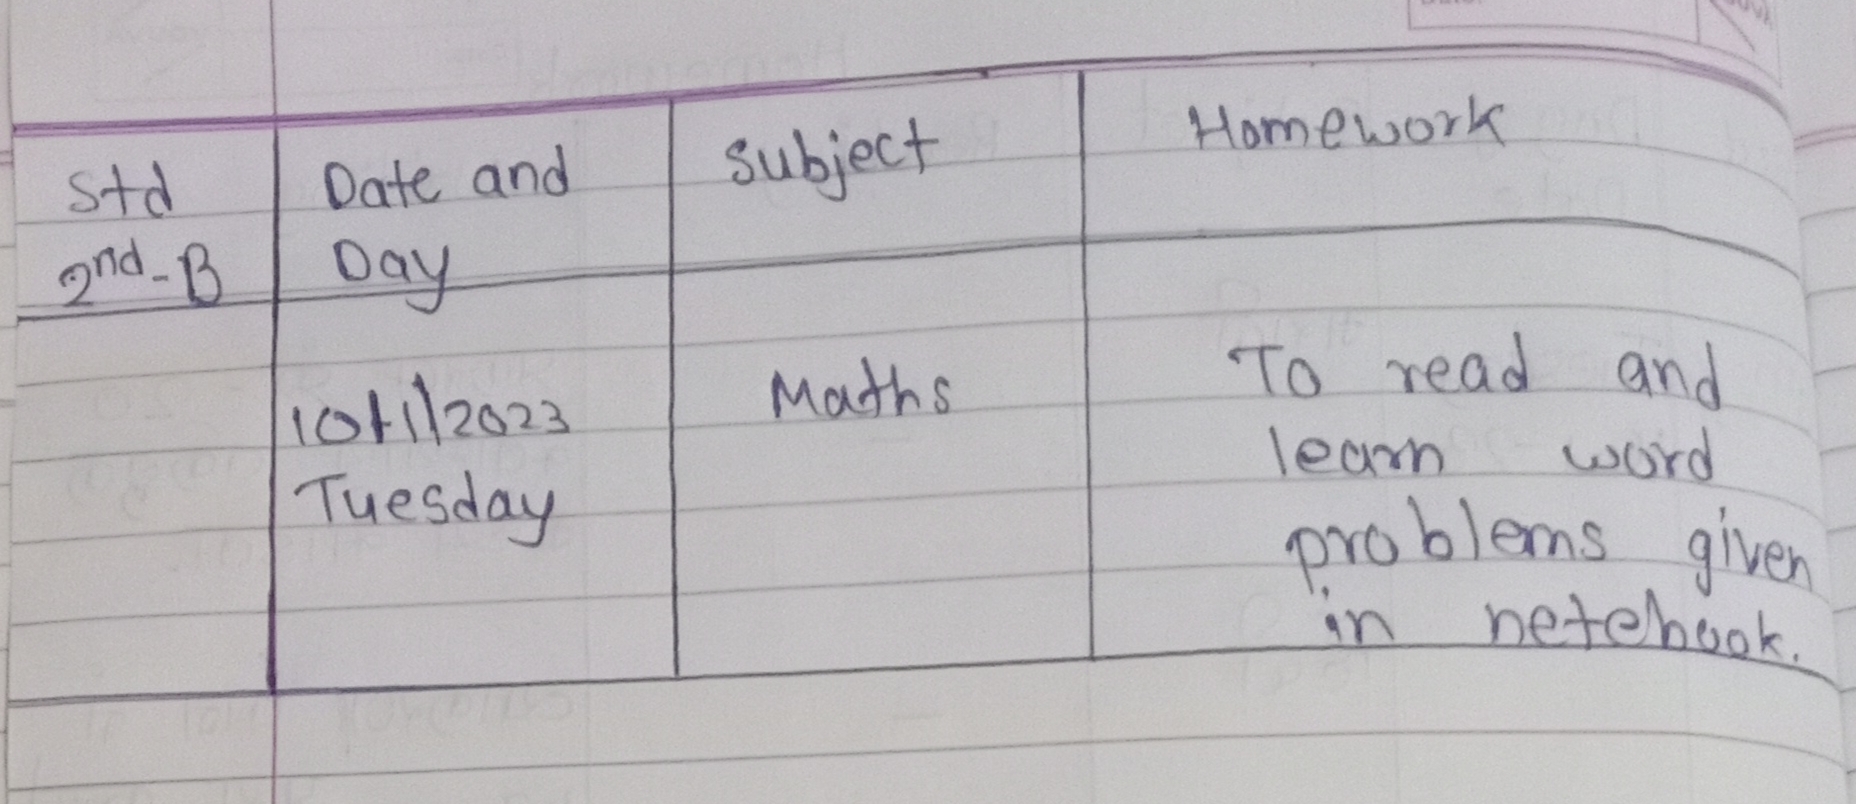 Std
2nd-B
Date and
Day
Subject
Homework
10/1/2023
Tuesday
Maths
To read and
learn word
problems given
in netebook.